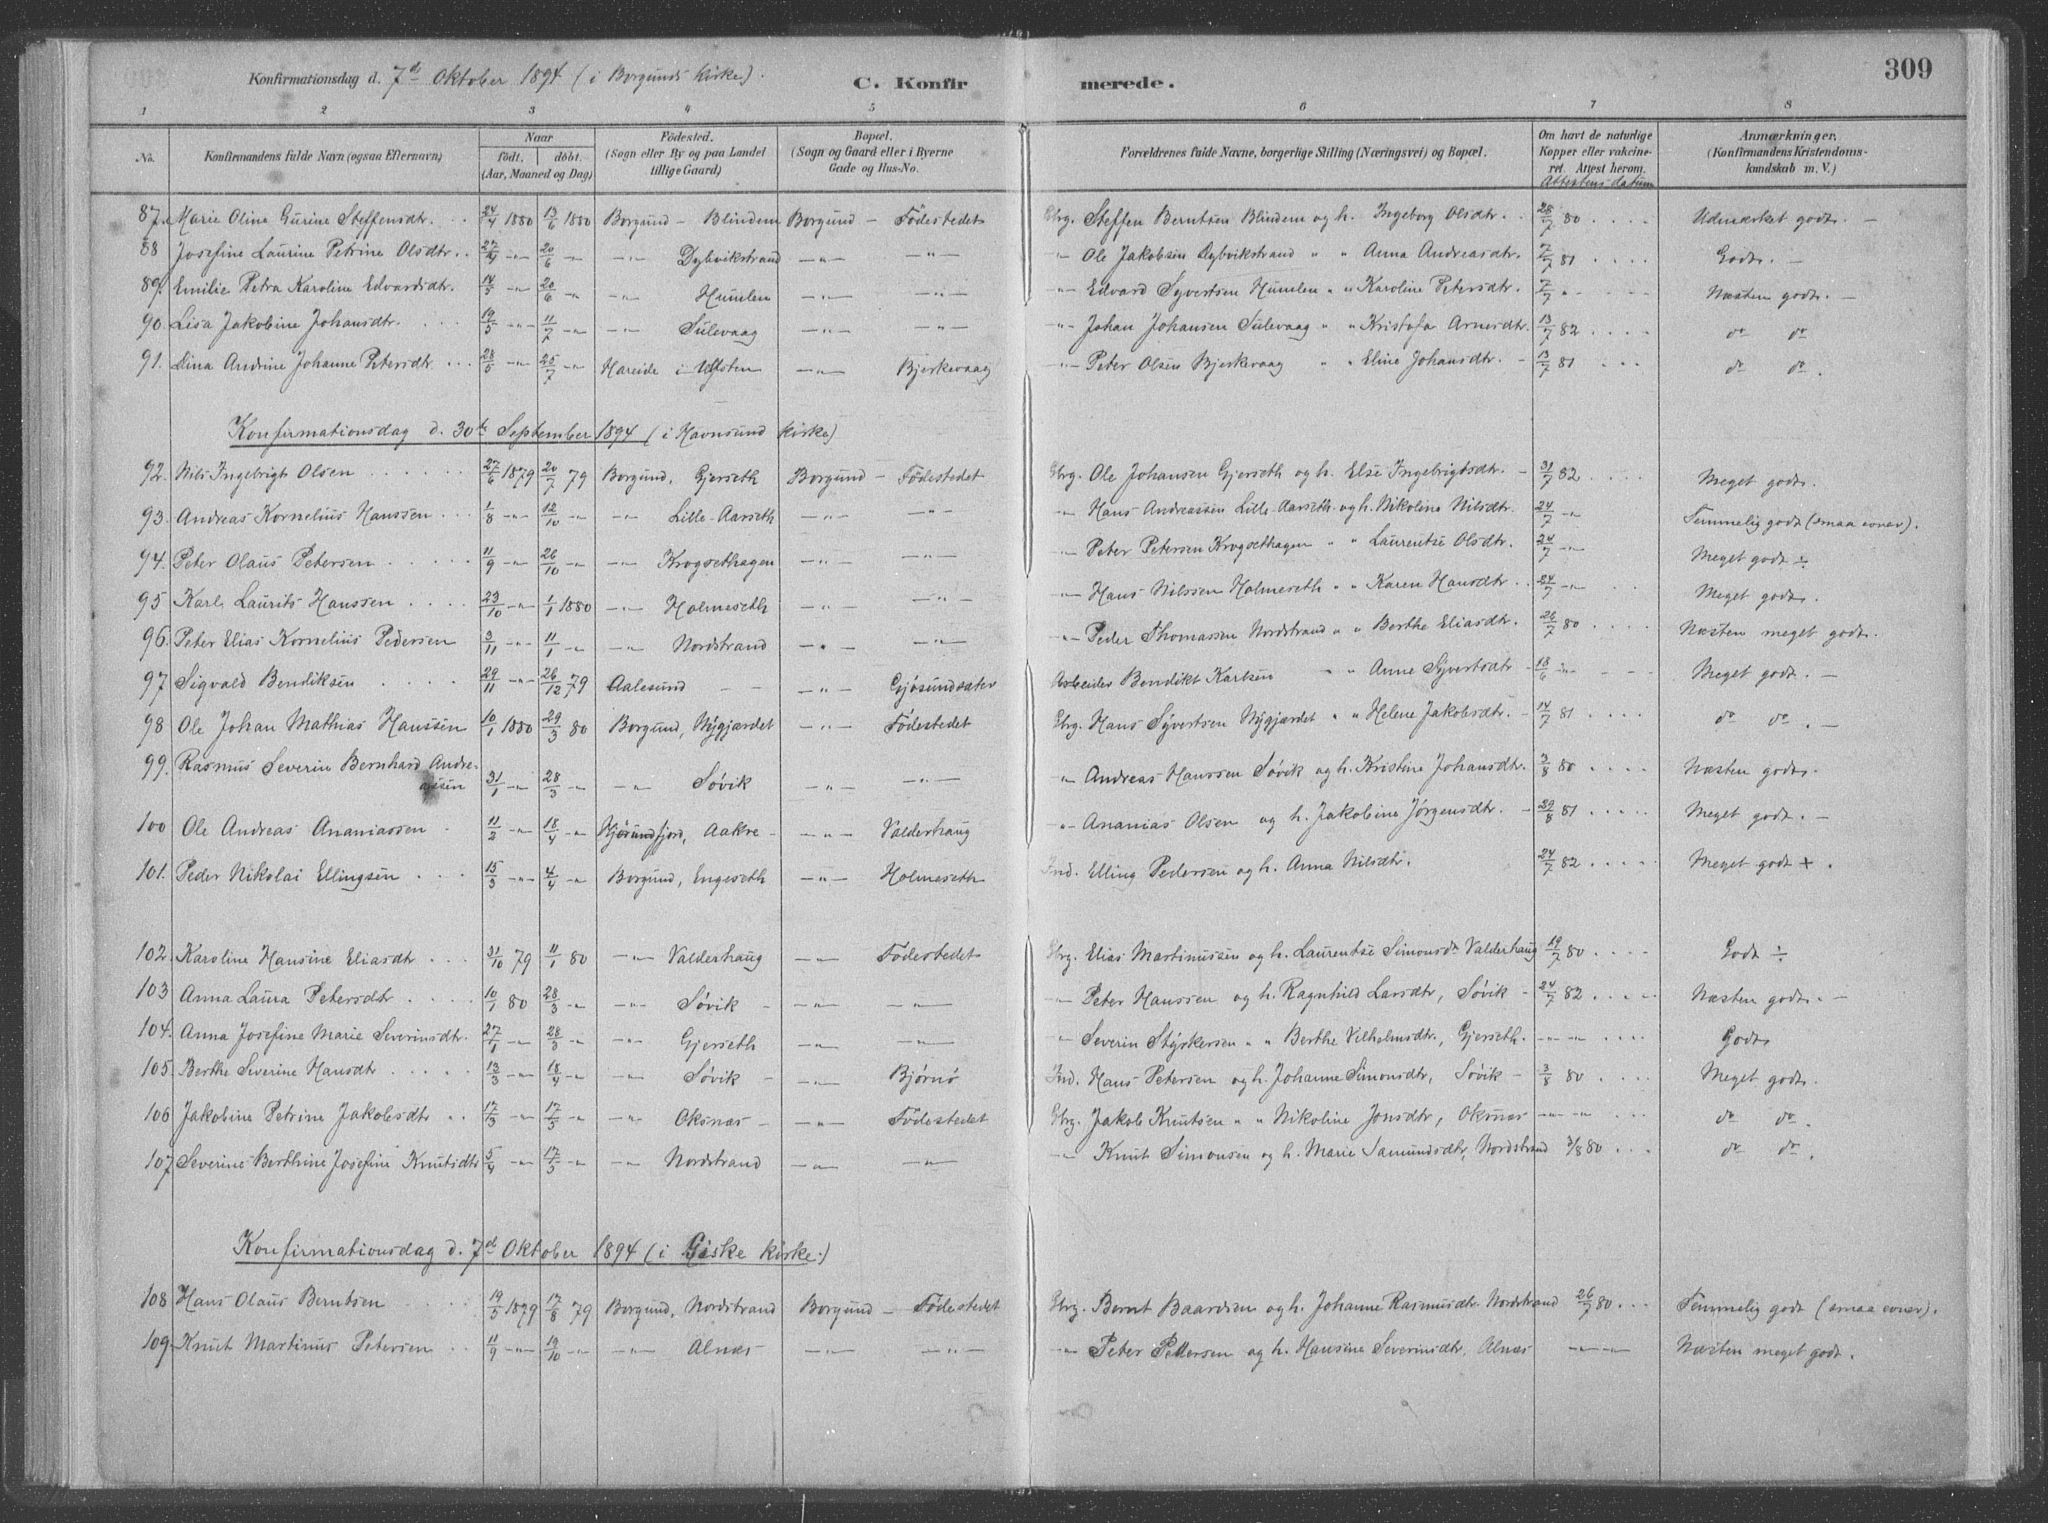 Konfirmationsdag d. 7de Oktober 1894 (i Borgunds Kirke). C. Konfir merede. 309
1 2 3 4 5 6 7 8
No. Konfirmandens fulde Navn (ogsaa Efternavn) Naar født. døbt. (Aar, Maaned og Dag) Födested. (Sogn eller By og paa Landet tillige Gaard) Bopæl. (Sogn og Gaard eller i Byerne Gade og Hus-No. Forældrenes fulde Navne, borgerlige Stilling (Næringsvei) og Bopæl. Om havt de naturlige Kopper eller vakcineret. Attest herom. Attestens datum Anmærkninger. (Konfirmandens Kristendomskundskab m. V.)
87. Marie Oline Gurine Steffensdtr. 24/4 1880 13/6 1880 Borgund - Blindem Borgund - Födestedet Gbrg. Steffen Berntsen Blindem og h. Ingeborg Olsdtr. 28/7 80 Udmærket godt. -
88 Josefine Laurine Petrine Olsdtr. 27/4 -"- 20/6 -"- -"- Dybvikstrand -"- -"- -"- Ole Jakobsen Dybvikstrand " " Anna Andreasdtr. 7/7 81 Godt. -
89. Emilie Petra Karoline Edvardsdtr. 14/5 -"- 20/6 -"- -"- Humlen -"- -"- -"- Edvard Syvertsen Humlen " " Karoline Petersdtr. 7/7 " Næsten godt. -
90. Lisa Jakobine Johansdtr. 19/5 -"- 11/7 -"- -"- Sulevaag -"- -"- -"- Johan Johansen Sulevaag " " Kristofa Arnesdtr. 13/7 82 do do
91. Dina Andrine Johanne Petersdtr. 28/5 -"- 25/7 -"- Hareide i Ulsten -"- Bjerkevaag -"- Peter Olsen Bjerkevaag " " Eline Johansdtr. 13/7 81 do do.
Konfirmationsdag d. 30te September 1894 (i Havnsund kirke)
92. Nils Ingebrigt Olsen 27/6 1879 20/7 79 Borgund, Gjerseth Borgund - Födestedet Gbrg. Ole Johansen Gjerseth og h. Else Ingebrigtsdtr. 31/7 82 Meget godt.
93. Andreas Kornelius Hanssen 1/8 -"- 12/10 -"- -"- Lille-Aarseth -"- -"- -"- Hans Andreassen Lille-Aarseth og h. Nikoline Nilsdtr. 24/7 -"- Temmelig godt (smaa evner).
94. Peter Olaus Petersen 11/9 -"- 26/10 -"- -"- Krogsethagen -"- -"- -"- Peter Petersen Krogsethagen " " Laurentse Olsdtr. 24/7 -"- Meget godt ÷
95 Karl Laurits Hanssen 23/10 -"- 1/1 1880 -"- Holmeseth -"- -"- -"- Hans Nilssen Holmeseth " " Karen Hansdtr. 24/7 -"- Meget godt.
96. Peter Elias Kornelius Pedersen 3/11 -"- 11/1 -"- -"- Nordstrand -"- -"- -"- Peder Thomassen Nordstrand " " Berthe Eliasdtr. 26/7 80 Næsten meget godt.
97 Sigvald Bendiksen 29/11 -"- 26/12 79 Aalesund -"- Gjøsundsæter Arbeider Bendikt Karlsen " " Anne Syvertsdtr 18/6 -"- Meget godt. -
98 Ole Johan Mathias Hanssen 10/1 1880 29/3 80 Borgund, Nygjærdet -"- Födestedet Gbrg. Hans Syvertsen Nygjærdet " " Helene Jakobsdtr. 14/7 81 do do. -
99. Rasmus Severin Bernhard Andreassen 31/1 -"- 28/3 -"- -"- Søvik -"- -"- " Andreas Hanssen Søvik og h. Kristine Johansdtr. 3/8 80 Næsten godt.
100 Ole Andreas Ananiassen 11/2 -"- 18/4 -"- Hjørundfjord, Aakre -"- Valderhaug -"- Ananias Olsen og h. Jakobine Jørgensdtr. 29/8 81 Meget godt. -
101. Peder Nikolai Ellingsen 15/3 -"- 4/4 -"- Borgund, Engeseth -"- Holmeseth Ind. Elling Pedersen og h. Anna Nilsdtr. 24/7 82 Meget godt +.
102. Karoline Hansine Eliasdtr 31/10 79 11/1 80 -"- Valderhaug -"- Födestedet Gbrg. Elias Martinussen og h. Laurentse Simonsdtr Valderhaug 19/7 80 Godt ÷
103 Anna Laura Petersdtr 10/1 80 28/3 -"- -"- Søvik -"- -"- -"- Peter Hanssen og h. Ragnhild Larsdtr, Søvik 24/7 82 Næsten godt. -
104. Anna Josefine Marie Severinsdtr. 27/1 -"- 28/3 -"- -"- Gjerseth -"- -"- " Severin Styrkersen " " Berthe Vilhelmsdtr, Gjerseth. -"- -"- Godt
105. Berthe Severine Hansdtr 13/3 -"- 18/4 -"- -"- Søvik -"- Bjørnø Ind. Hans Petersen og h. Johanne Simonsdtr, Søvik 3/8 80 Meget godt.
106 Jakobine Petrine Jakobsdtr 17/3 -"- 17/5 -"- -"- Oksnæs -"- Födestedet Gbrg. Jakob Knutsen " " Nikoline Jonsdtr, Oksnæs -"- -"- do do.
107 Severine Berthine Josefine Knutsdtr 5/4 -"- 17/5 -"- -"- Nordstrand -"- -"- -"- Knut Simonsen og h. Marie Samundsdtr, Nordstrand 3/8 80 do do.
Konfirmationsdag d. 7de Oktober 1894 (i Giske kirke.)
108 Hans Olaus Berntsen 19/5 1879 17/8 79 Borgund, Nordstrand Borgund - Födestedet Gbrg. Bernt Baardsen og h. Johanne Rasmusdtr. Nordstrand 26/7 80 Temmelig godt (smaa evner).
109. Knut Martinus Petersen 11/9 -"- 19/10 -"- -"- Alnæs -"- -"- -"- Peter Pedersen og h. Hansine Severinsdtr. Alnæs -"- -"- Næsten meget godt.